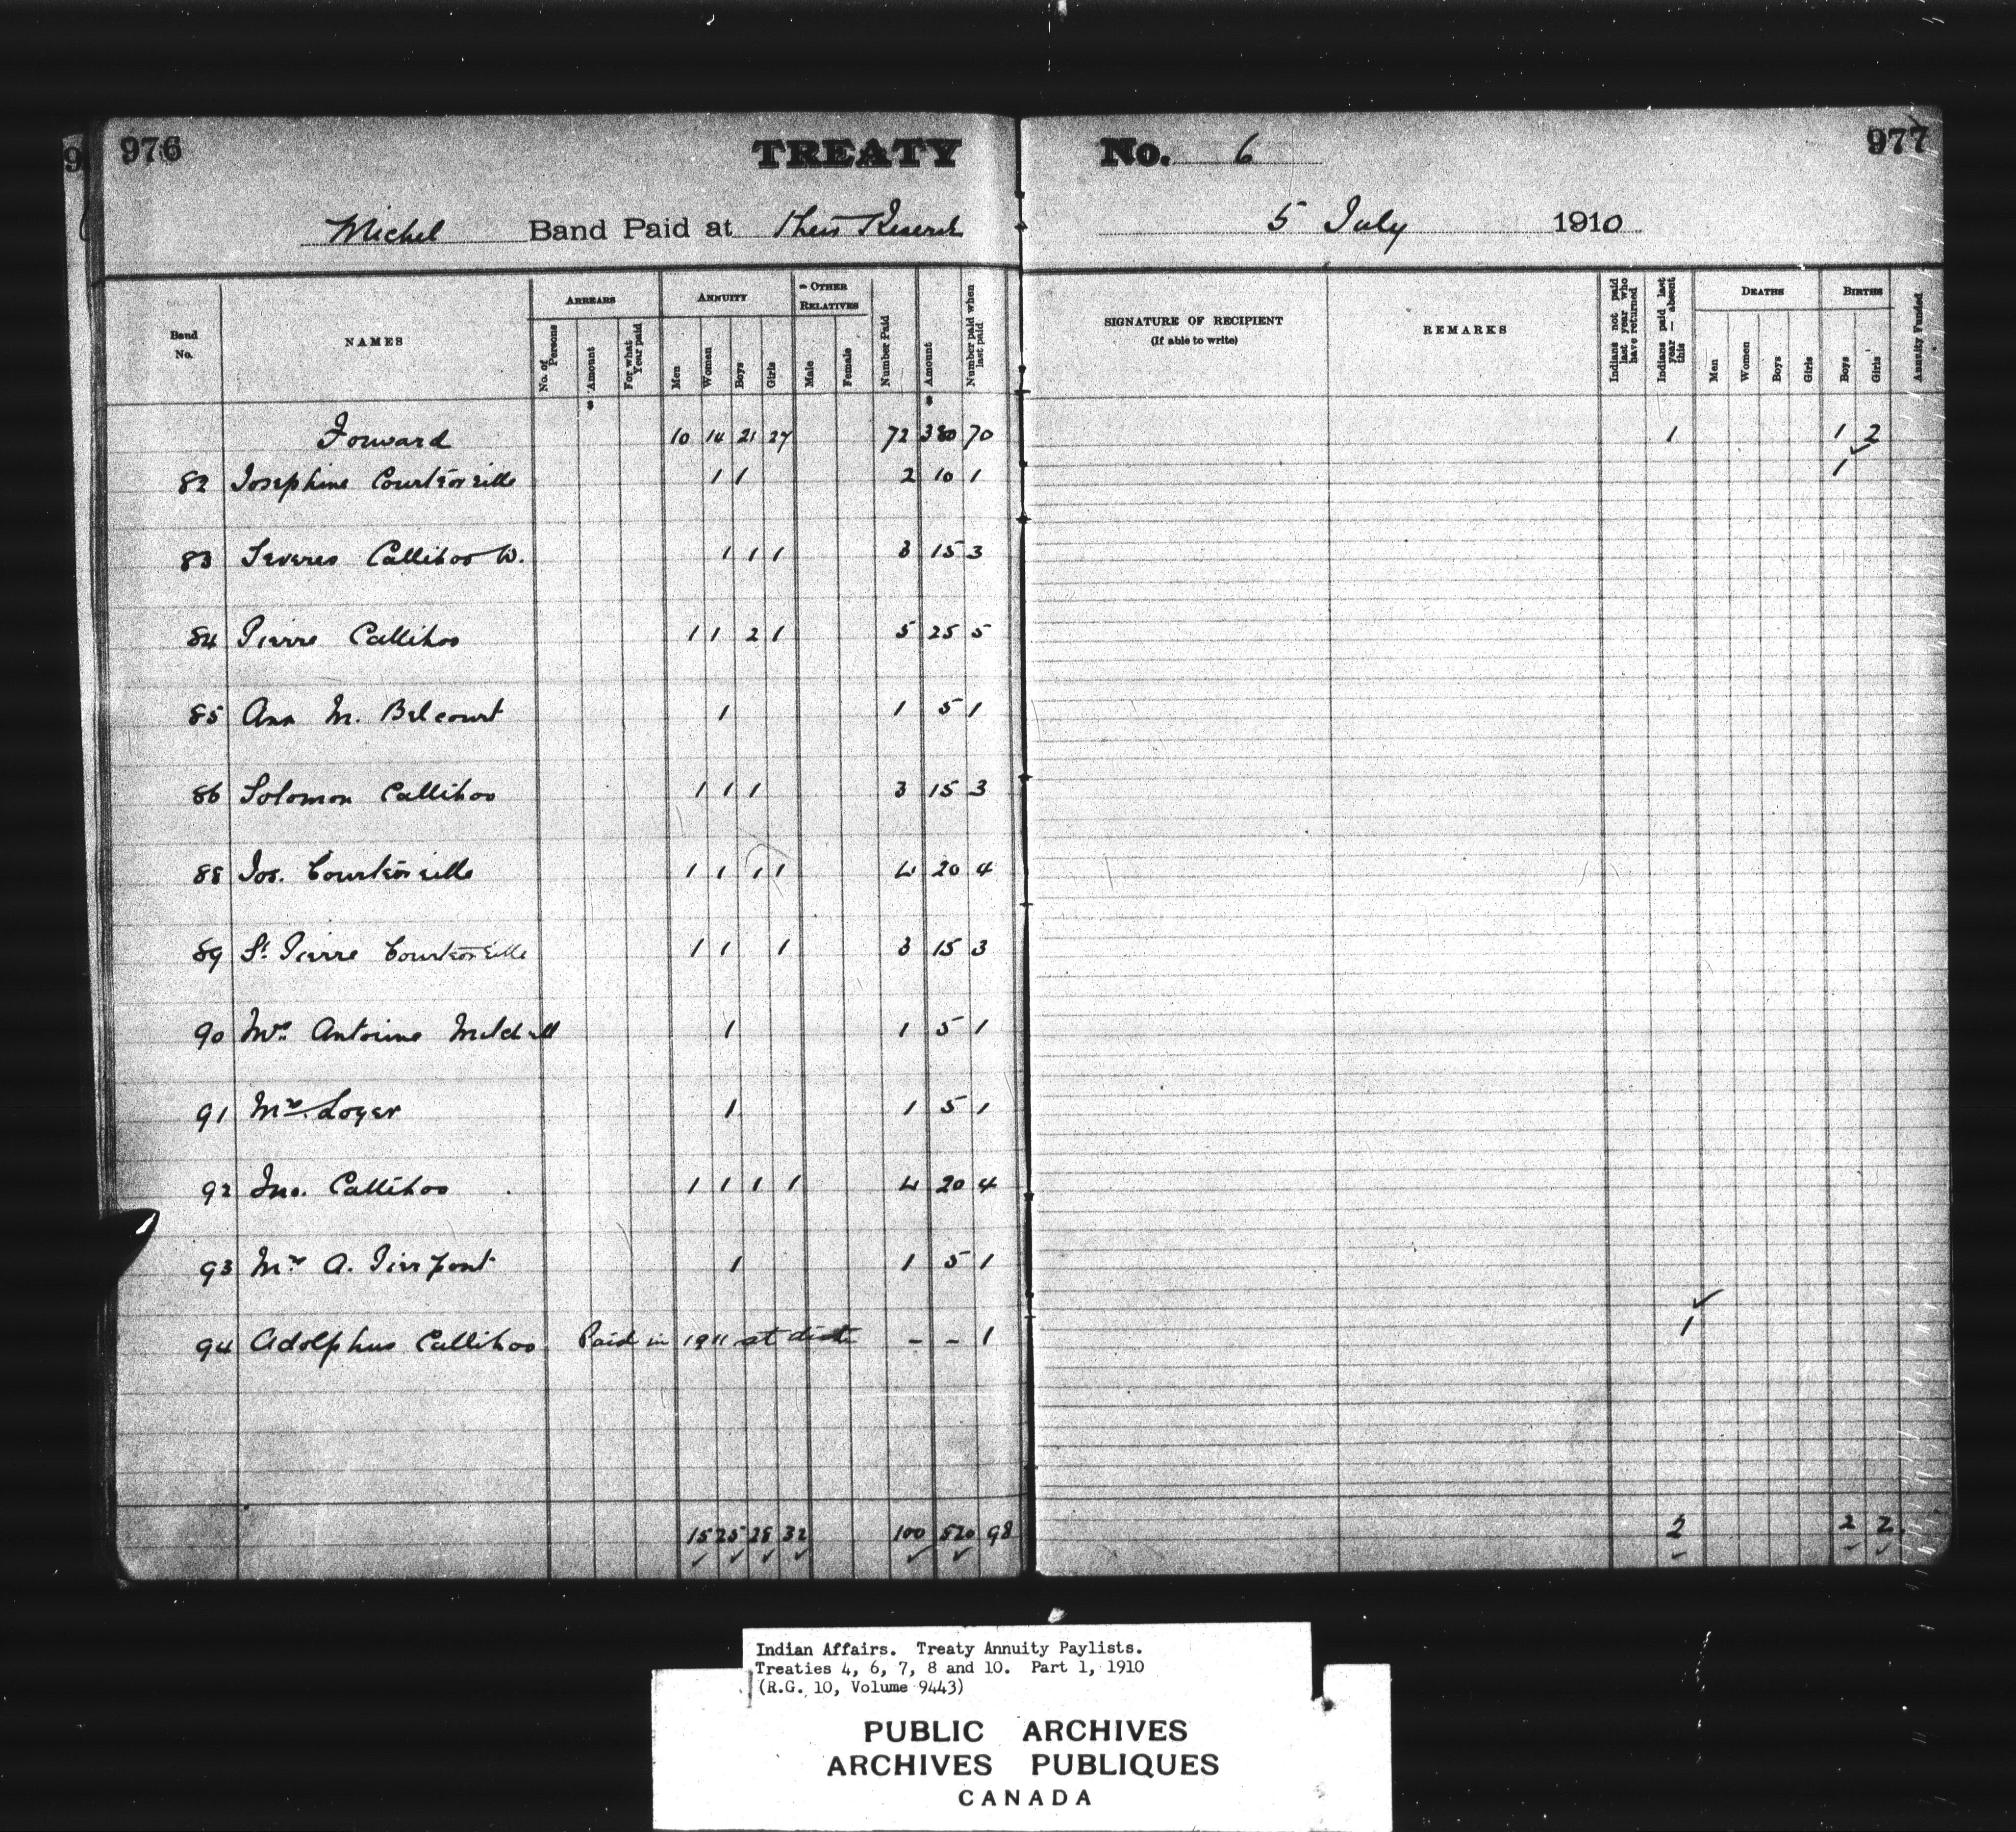 976 TREATY No. 6 977
Michel Band Paid at Their Reserve 5 July 1910
Band No. NAMES ARREARS ANNUITY OTHER RELATIVES Number Paid Amount Number paid when last paid SIGNATURE OF RECIPIENT (If able to write) REMARKS Indians not paid last year who have returned Indians paid last year — absent this DEATHS BIRTHS Annuity Funded
No. of Persons Amount For what Year paid Men Women Boys Girls Male Female Men Women Boys Girls Boys Girls
$ $
Forward 10 14 21 27 72 380 70 1 1 2
82 Josephine Courtoreille 1 1 2 10 1 1
83 Severes Callihoo W. 1 1 1 3 15 3
84 Pierre Callihoo 1 1 2 1 5 25 5
85 Ann M. Belcourt 1 1 5 1
86 Solomon Callihoo 1 1 1 3 15 3
88 Jos. Courtoreille 1 1 1 1 4 20 4
89 St. Pierre Courtoreille 1 1 1 3 15 3
90 Mrs. Antoine Mitchell 1 1 5 1
91 Mrs. Loyer 1 1 5 1
92 Jno. Callihoo 1 1 1 1 4 20 4
93 Mrs A. Pierpont 1 1 5 1
94 Adolphus Callihoo Paid in 1911 at – – 1 1
15 25 28 32 100 520 98 2 2 2
Indian Affairs. Treaty Annuity Paylists.
Treaties 4, 6, 7, 8 and 10. Part 1, 1910
(R.G. 10, Volume 9443)
PUBLIC ARCHIVES
ARCHIVES PUBLIQUES
CANADA